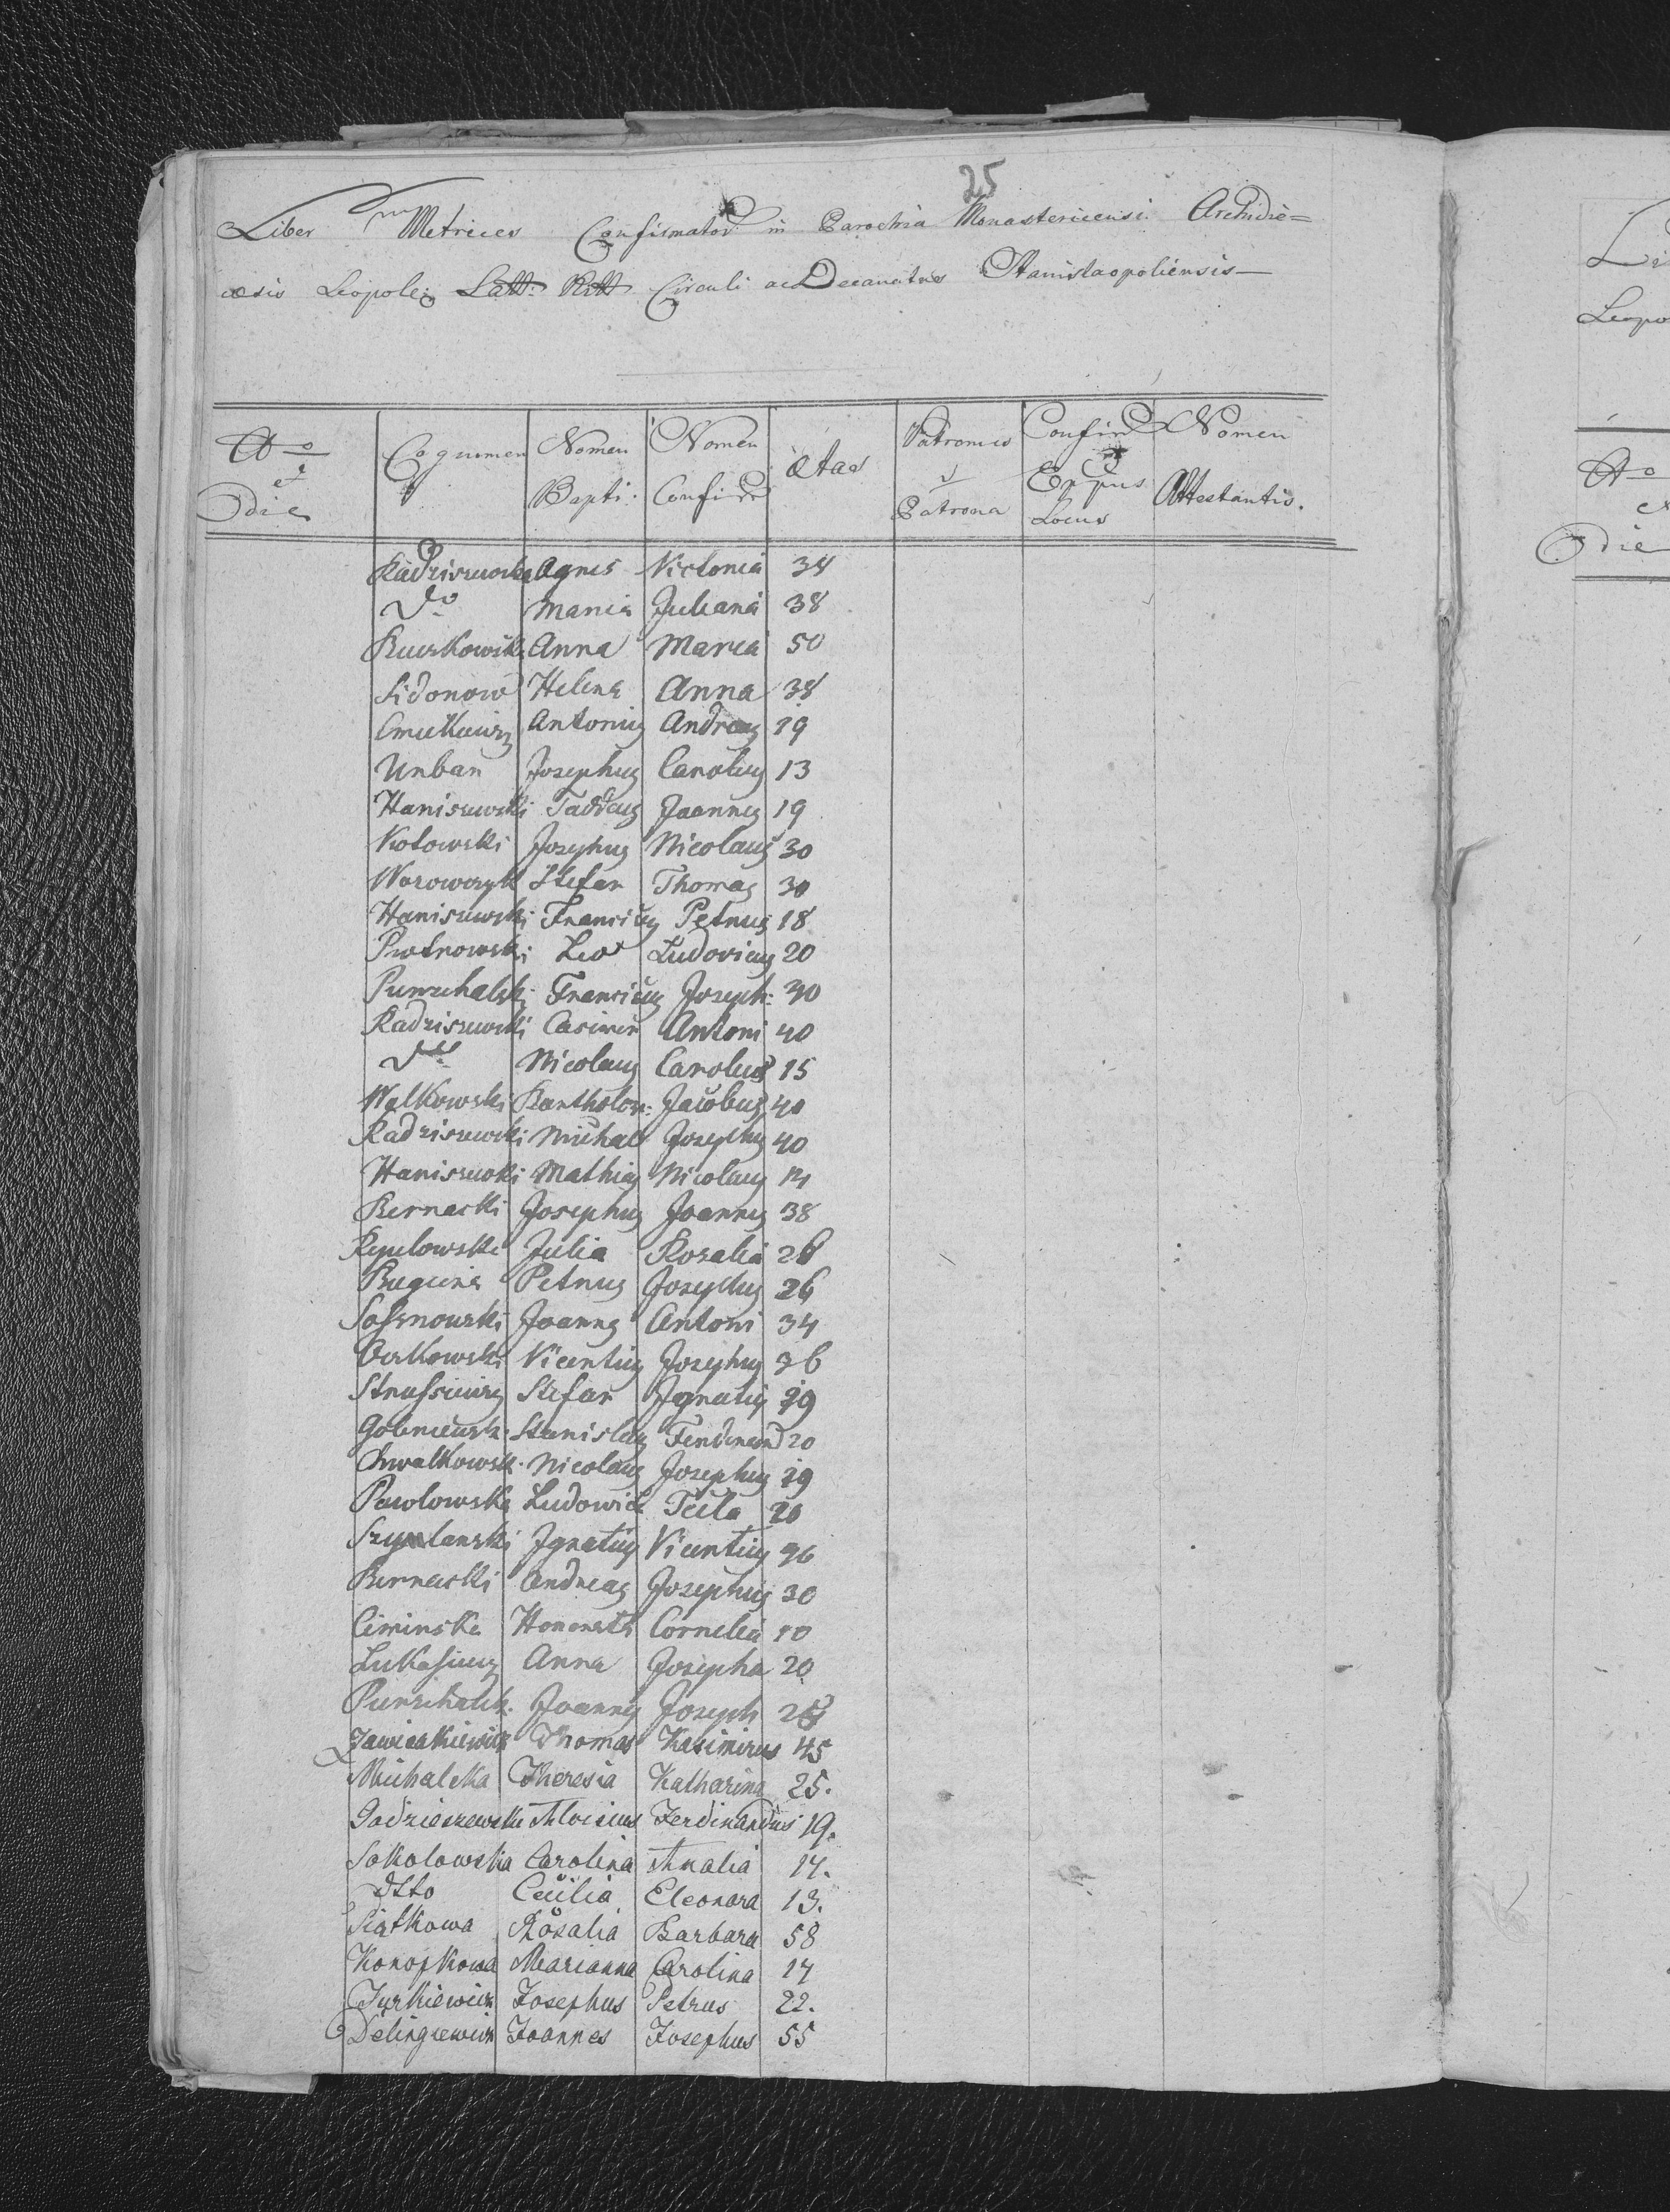 25
Liber Metrices Confirmator in Parochia Monastericensi Archidiæ=
cesis Leopole: Latt: Ritt Circuli ac Decanatus Stanislaopoliensis—
Ao et die | Cognomen | Nomen Bapti: | Nomen Confir | ætas | Patronus v Patrona | Confir Locus | Nomen Attestantis.
Radziszewska Agnes Victoria 34
do Maria Juliana 38
Anna Maria 50
Sidonow Helena Anna 38
Antonius Andreas 19
Urban Josephus Carolus 13
Haniszewski Taddeus Joannes 19
Kotowski Josephus Nicolaus 30
Worowczyk Stefan Thomas 30
Haniszewski Francicus Petrus 18
Piotrowski Leo Ludovicus 20
Punschalski Francicus Joseph: 30
Radziszewski Casimir Antoni 40
dto Nicolaus Carolus 15
Walkowski Bartholom: Jacobus 40
Radziszewski Michael Josephus 40
Haniszewski Mathias Nicolaus 14
Bernacki Josephus Joannes 38
Julia Rosalia 26
Petrus Josephus 26
Sossnowski Joannes Antoni 34
Vicentius Josephus 36
Strussiewicz Stefan Ignatius 19
Stanislaus Ferdinand 20
Chwalkowsk. Nicolaus Josephus 19
Pawlowska Ludowica Tecla 20
Szymlanski Ignatius Vicentius 96
Bernacki Andreas Josephus 30
Ciminska Honorata Cornelia 10
Lukassiewicz Anna Josepha 20
Punschalsk. Joannes Joseph
Zawieskiewicz Thomas Kasimirus 45
Michalska Theresia Katharina 25.
Godzieszewski Aloisius Ferdinandus 19.
Sokolowska Carolina Analia 14.
dtto Cecilia Eleonora 13.
Siatkowa Rosalia Barbara 58
Konopkowa Marianna Carolina 14
Jurkiewicz Josephus Petrus 22.
Delingiewicz Joannes Josephus 55
Li
Leopo
Ao
et
die